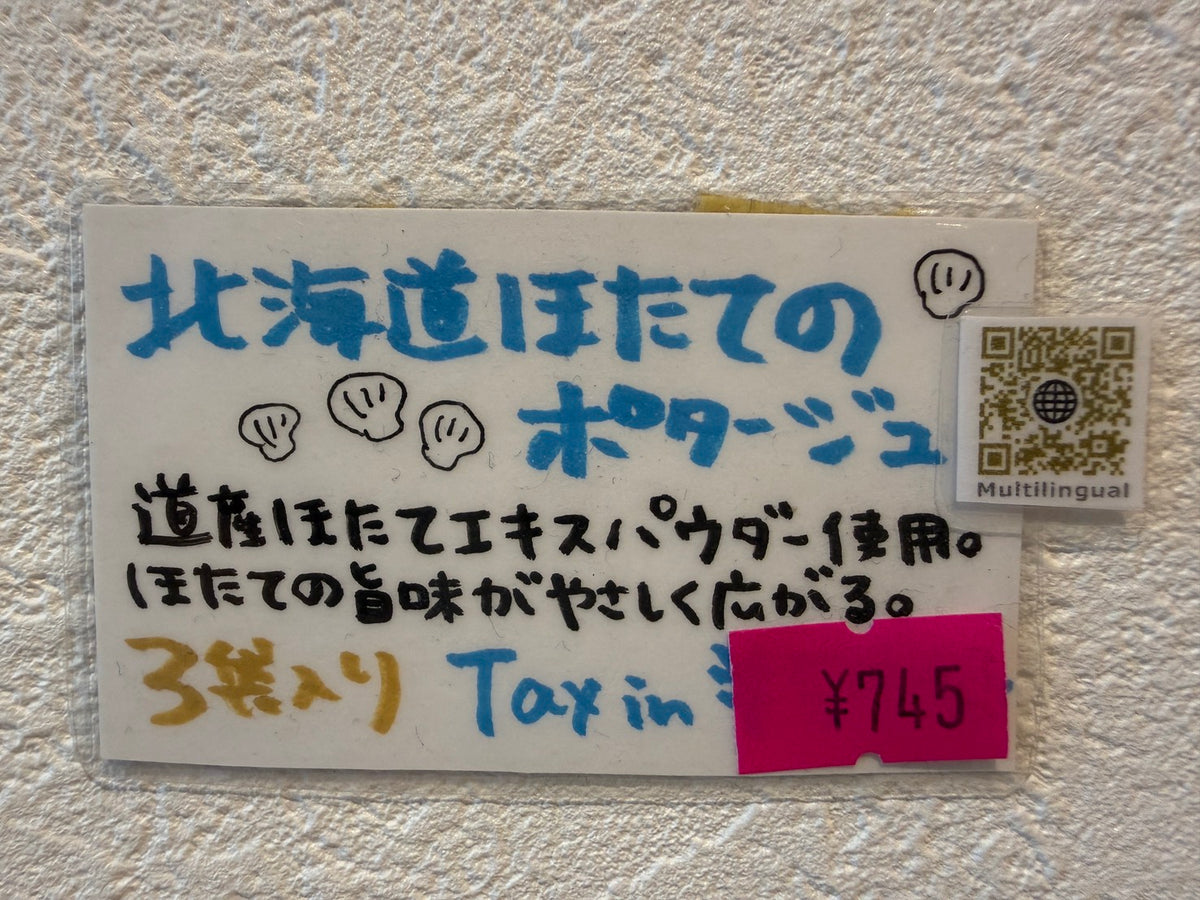 北海道ほたての
ポタージュ
Multilingual
道産ほたてエキスパウダー使用。
ほたての旨味がやさしく広がる。
3袋入り Tax in ¥745